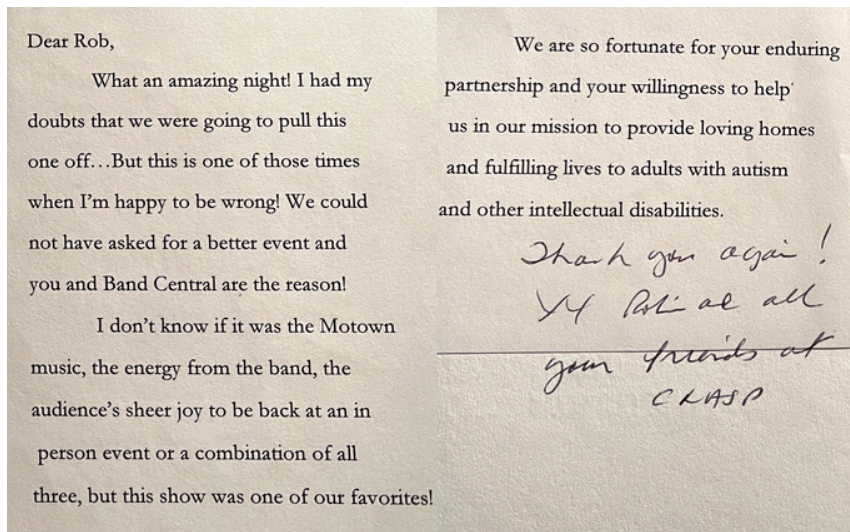 Dear Rob,
What an amazing night! I had my
doubts that we were going to pull this
one off…But this is one of those times
when I'm happy to be wrong! We could
not have asked for a better event and
you and Band Central are the reason!
I don't know if it was the Motown
music, the energy from the band, the
audience's sheer joy to be back at an in
person event or a combination of all
three, but this show was one of our favorites!
We are so fortunate for your enduring
partnership and your willingness to help
us in our mission to provide loving homes
and fulfilling lives to adults with autism
and other intellectual disabilities.
Thank you again!
all
your friends at
CLASP